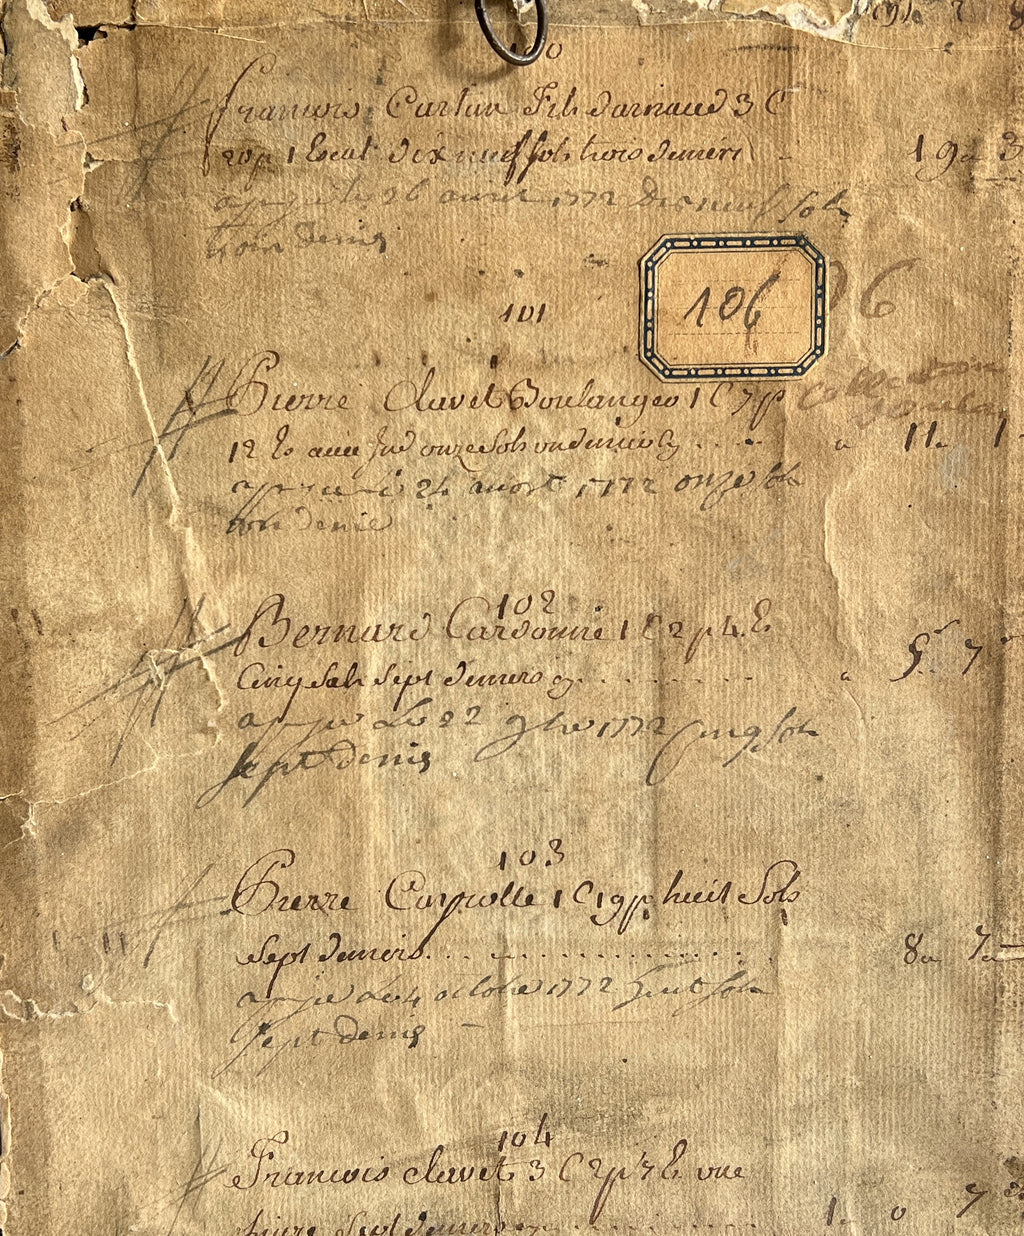 100
francois Curtun fils darnaud 3 C
20p 1 Escat dix neuf sols trois deniers 19 3
a paye le 26 avril 1772 Dix neuf sols
trois Denis
106
101
Pierre Clavet Boulanger 1 C 7p
12 E onze Sols un denier 11 1
a paye le 24 aoust 1772 onze sols
un denie
102
Bernard Cardonne 1 C 2p 4 E
Cinq Sols Sept deniers 5 7
a paye Le 22 9bre 1772 Cinq sols
sept denis
103
Pierre Cayrolle 1 C 19p huit Sols
Sept deniers 8 7
a paye Le 4 octobre 1772 huit sols
sept denis
104
Francois clavet 3 C 2p 7 E une
livre Sept deniers 1 0 7